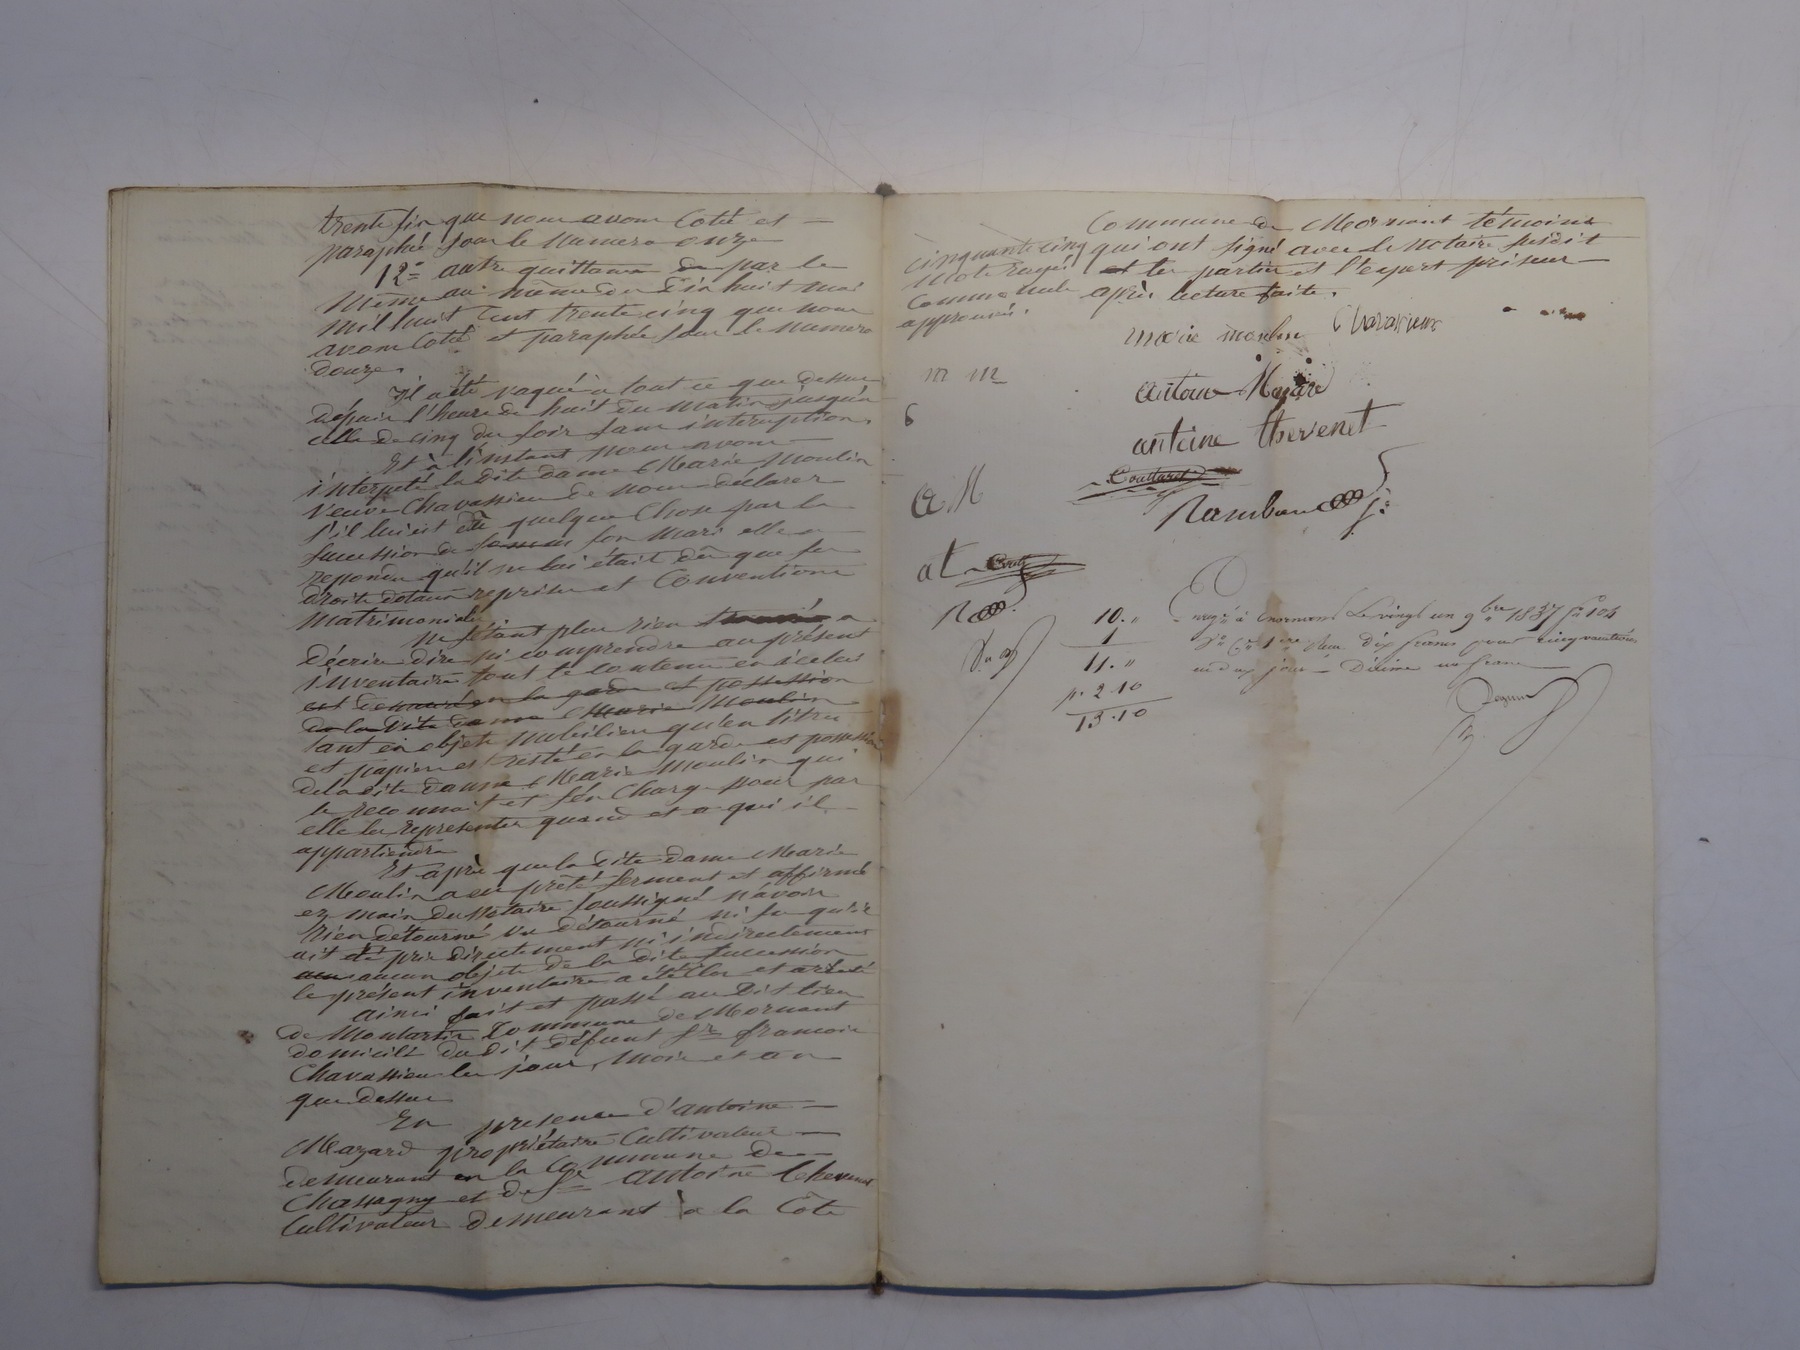 trente six que nous avons Coté et
paraphé sous le Numero onze
12° autre quittance du par le
même au même du dix huit mai
mil huit Cent trente cinq que nous
avons Coté et paraphée sous le Numero
douze.
Il a été vaqué à tout ce que dessus
dépuis l'heure de huit du matin jusqu'à
celle de cinq du soir sans intéruption.
Et à l'instant nous avons
interpelé la dite dame Marie Moulin
Veuve Chavassieu de nous déclarer
s'il lui est dû quelque Chose par la
succession de son Mari elle a
repondu qu'il ne lui était dû que ses
droits dotaux reprises et Conventions
matrimoniales
ne s'étant plus rien trouvé a
décrire dire ni comprendre au présent
inventaire tout le contenu en icelui
est demeuré en la garde et possession
de la dite dame Marie Moulin
tant en objets Mobiliers qu'en titres
et papiers est resté en la garde et possession
de la dite dame Marie Moulin qui
le reconnait et s'en Charge pour par
elle les representer quand et a qui il
appartiendra
Et après que la dite dame Marie
Moulin a eu prêté serment et affirmé
ez main du Notaire soussigné n'avoir
rien détourné vu détourné ni su qu'il
ait été pris directement ni indirectement
aucun objets de la dite succession
le présent inventaire a été Clos et arreté
ainsi fait et passé au dit lieu
de Montartin Commune de Mornant
domicile du dit défunt Sr. francois
Chavassieu les jour, Mois et an
que dessus
En presence d'antoine
Mazard propriétaire Cultivateur
demeurant en la Commune de
Chassagny et de Sr antoine thevenet
Cultivateur demeurant à la Côte
Commune de Mornant témoins
qui ont signé avec le Notaire susdit
et les parties et l'expert priseur
après lecture faite.
cinquante cinq
Mots rayés
Comme nuls
approuvés.
marie moulin Chavassieux
antoine Mazard
antoine thevenet
Couttaret
Rambaud
m m
a M
a t
10. "
1
11. "
p. 2.10
13.10
Enrgé à Mornant Le vingt un 9bre 1837 f° 104
Ro Ce 1ere Reçu dix francs pour cinq vacations
Décime un franc